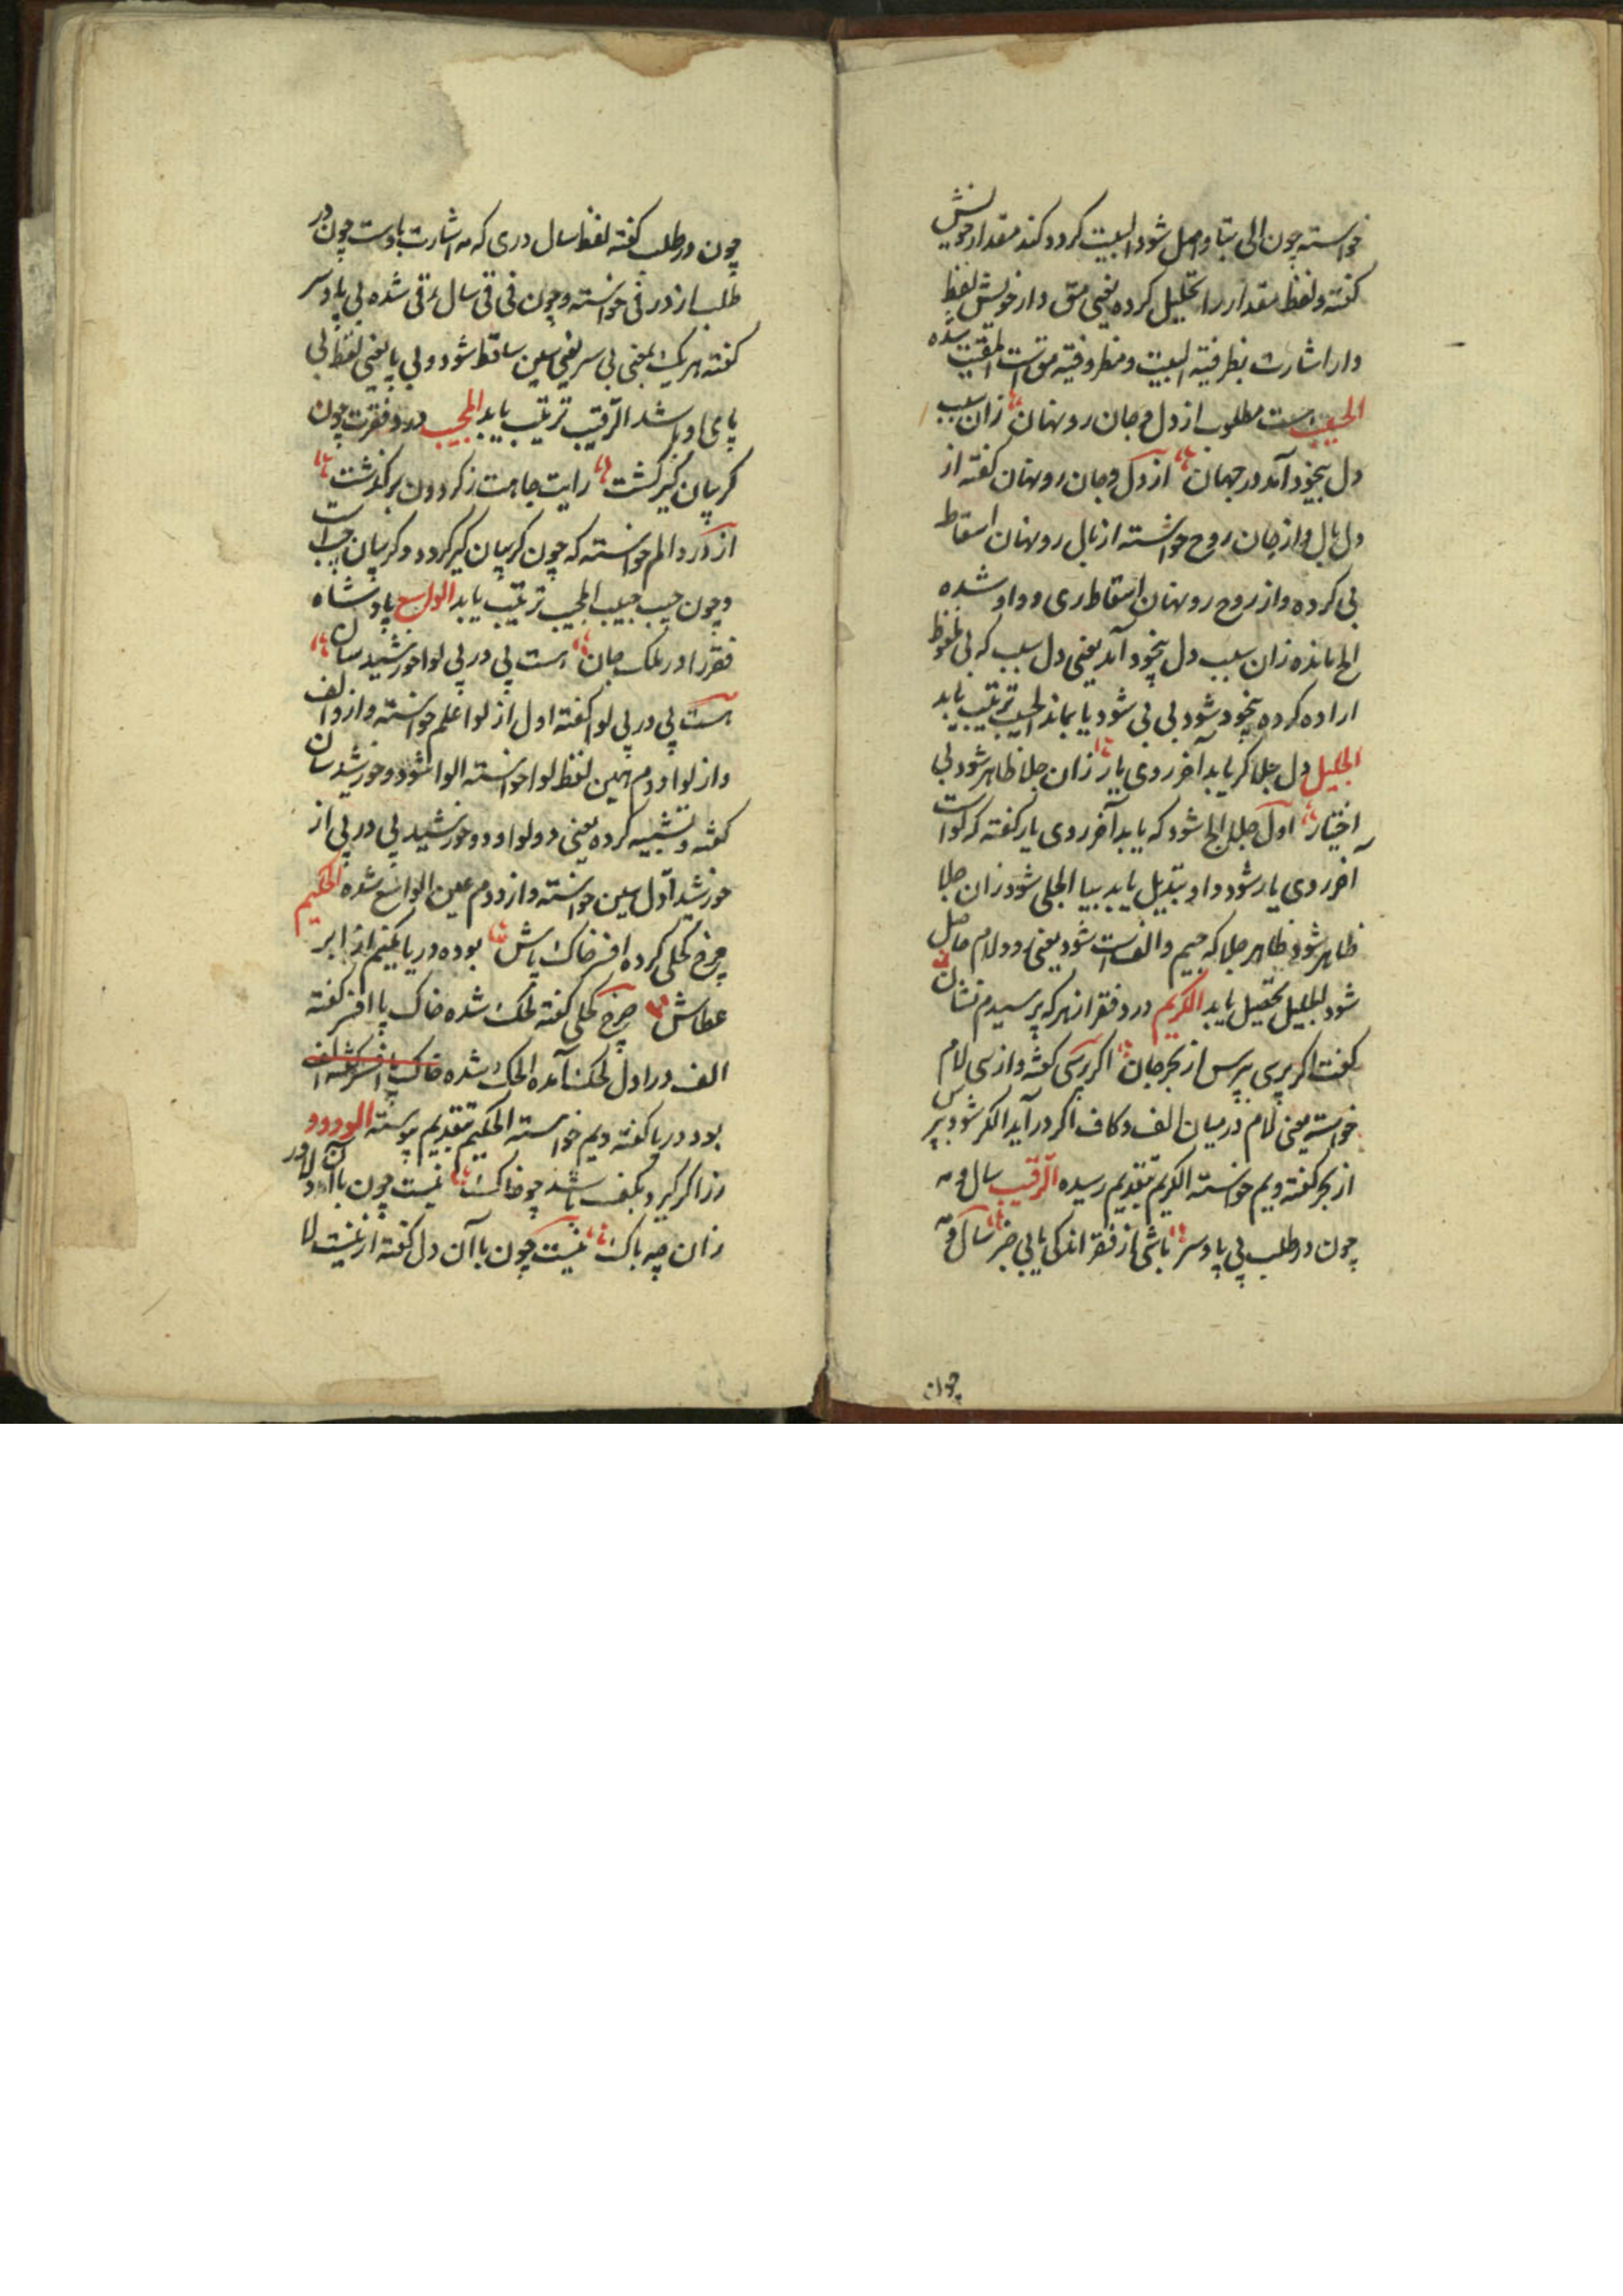 خواسته چون الی بتا واصل شود البیت کردد کند مقدار خویش
کفته و لفظ مقدار را تحلیل کرده یعنی مق دار خویش لفظ
دار اشارت بظرفیة البیت و مظروفیة مق است المقیت شده
الحسیب هست مطلوب از دل و جان رو نهان زان سبب
دل بیخود آمد در جهان از دل و جان رو نهان کفته از
دل بال و از جان روح خواسته از بال رو نهان اسقاط
بی کرده و از روح رو نهان اسقاط ری و واو شده
الح مانده زان سبب دل بیخود آمد یعنی دل سبب که بی ملفوظ
اراده کرده بیخود شود بی بی شود یا بماند الحسیب ترتیب یابد
الجلیل دل جلا کر یابد آخر روی یار زان جلا ظاهر شود بی
اختیار اول جلا الجا شود که یابد آخر روی یار کفته که لواست
آخر روی یار شود و او تبدیل یابد بیا الجلی شود زان جلا
ظاهر شود ظاهر جلا که جیم و الفست شود یعنی دو لام حاصل
شود الجلیل تحصیل یابد الکریم در ره فقر از هر که پرسیدم نشان
کفت اکر پرسی بپرس از بحر جان اکر رسی کفته و از سی لام
خواسته یعنی لام در میان الف و کاف اکر درآید الکر شود بپرس
از بحر کفته و یم خواسته الکریم تقدیم رسیده الرقیب سال و مه
چون در طلب بی پا و سر باشی از فقر اندکی یابی خبر سال و مه
چون
چون در طلب کفته لفظ سال دری که مه اشارت باوست چون در
طلب از در فی خواسته و چون فی قی سال ء قی شده بی پا و سر
کفته هر یک بمعنی بی سر یعنی سین ساقط شود و بی پا یعنی لفظ بی
پای او باشد الرقیب ترتیب یابد المجیب درد فقرت چون
کریبان کیر کشت رایت جاهت ز کردون برکذشت
از درد الم خواسته که چون کریبان کیر کردد و کریبان جیب است
و چون جیب جیب المجیب ترتیب یابد الواسع پادشاه
فقر را در ملک جان هست پی در پی لوا خورشید سان
هست پی در پی لوا کفته اول از لوا علم خواسته و از او الف
و از لواء دوم همین لفظ لوا خواسته الوا شود و خورشید سان
کفته و تشبیه کرده یعنی دو لوا و دو خورشید پی در پی از
خورشید اول سین خواسته و از دوم عین الواسع شده الحکیم
چرخ کحلی کرده افسر خاک پاش بوده دریا یمنم از ابر
عطاش چرخ کحلی کفته لحک شده خاک پا افسر کفته
الف در اول لحک آمده الحک شده خاک پا افسر کفته الف
بود دریا کفته و یم خواسته الحکیم تقدیم پیوسته الودود
رزا کر کیرد بکف باشد چو خاک نیست چون با آن دلاور
زان چه باک نیست چون با آن دل کفته از نیست لا